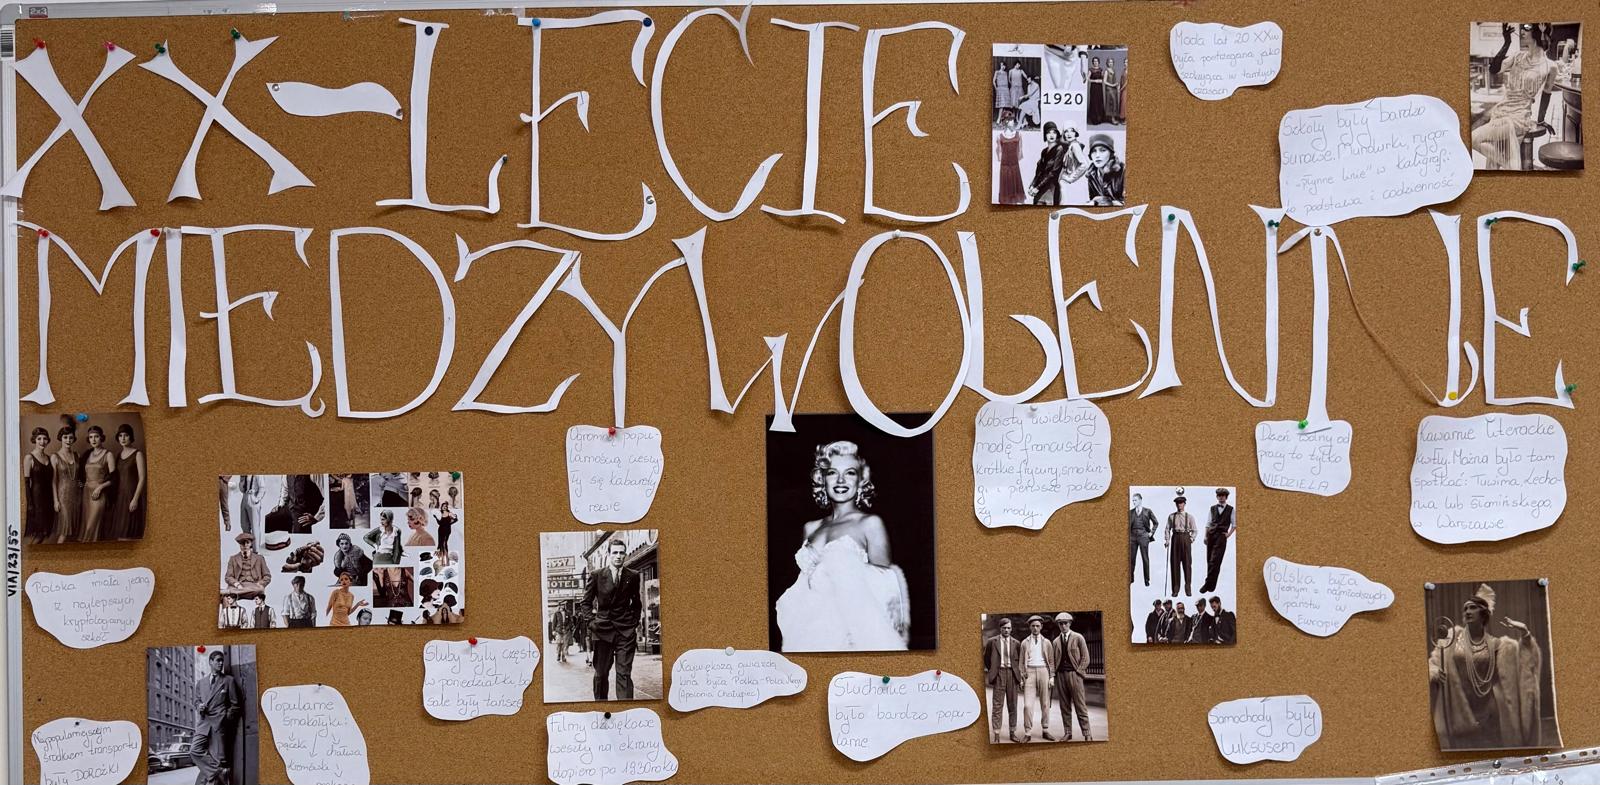 XX-LECIE
MIĘDZYWOJENNE
1920
Moda lat 20 XXw
była postrzegana jako
szokująca w tamtych
czasach
Szkoły były bardzo
surowe. Mundurki, rygor
i „płynne linie" w kaligrafii
to podstawa i codzienność
Ogromną popu-
larnością cieszy-
ły się kabarety
i rewie
Kobiety uwielbiały
modę francuską-
krótkie fryzury, smokin-
gi i pierwsze poka-
zy mody.
Dzień wolny od
pracy to tylko
NIEDZIELA
Kawiarnie literackie
Można było tam
spotkać: Tuwima, Lecho-
nia lub Słonimskiego,
w Warszawie
HOTEL
VIA/23/55
Polska miała jedną
z najlepszych
kryptologicznych
szkół
Polska była
jednym z najmłodszych
państw w
Europie
Śluby były często
w poniedziałki bo
sale były tańsze
Największą gwiazdą
kina była Polka-Pola Negri
(Apolonia Chałupiec)
Słuchanie radia
było bardzo popu-
larne
Samochody były
luksusem
Najpopularniejszym
środkiem transportu
były DOROŻKI
Popularne
smakołyki:
pączki chałwa
kromówka
Filmy dźwiękowe
weszły na ekrany
dopiero po 1930 roku